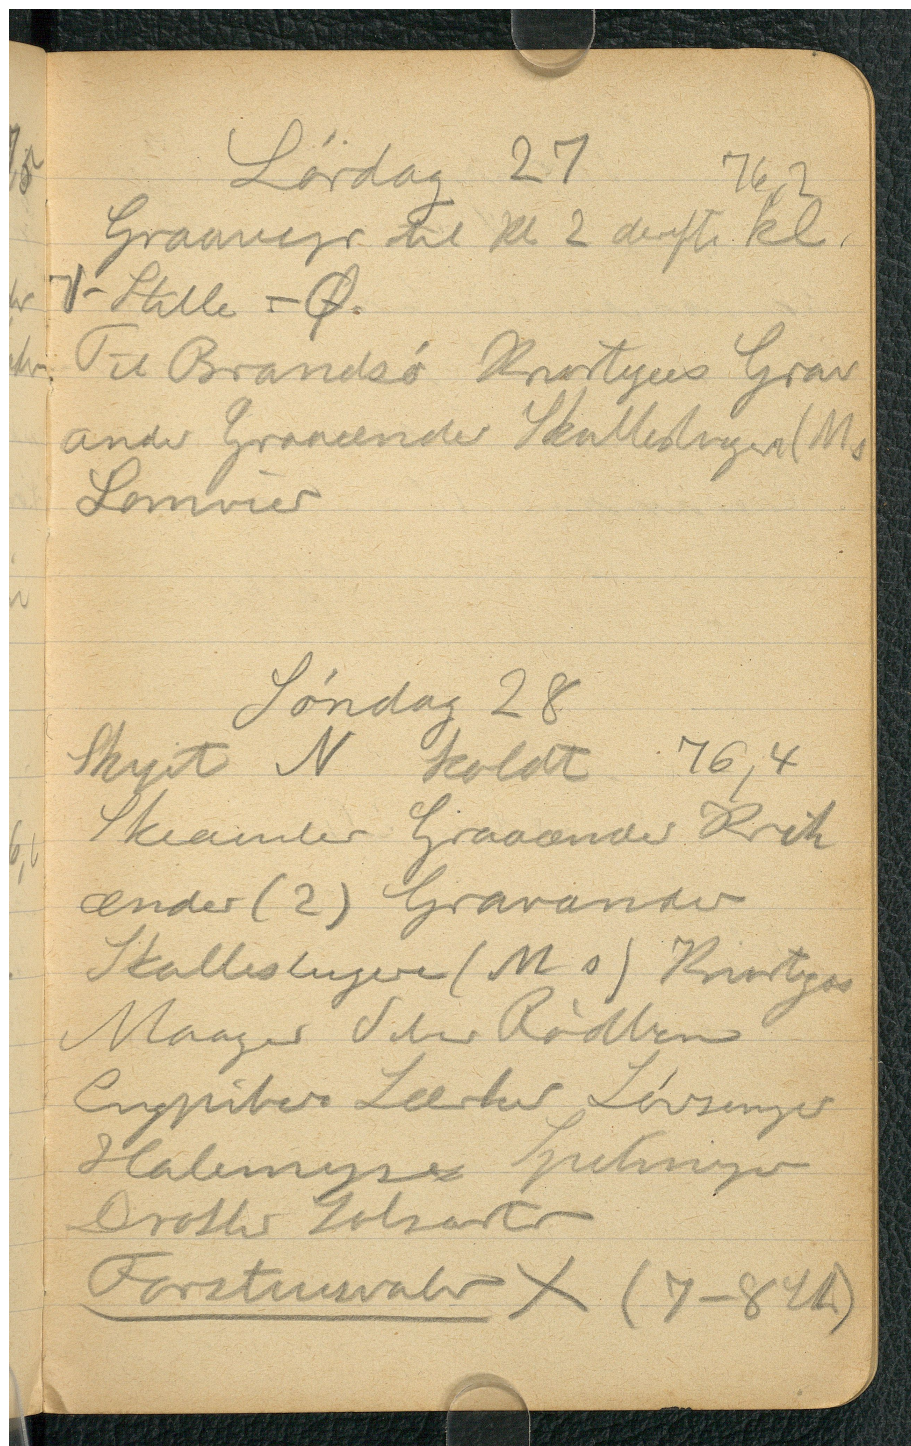 Lørdag 27 76,2
Graavejr til Kl 2 derfti kl.
V- Stille - Ø.
Til Brandsø Knortgees Grav
ander Graaænder Skalleslugere (M s
Lomvier
Søndag 28
Skyet N koldt 76,4
Skeænder Graaænder Krik
ænder (2) Gravander
Skalleslugere (M s) Knortgås
Maager Viber Rødben
Engpiber Lærker Løvsanger
Halemejser Spetmejse
Drosler Solsorte
Forstuesvaler X (7-8 Stk)